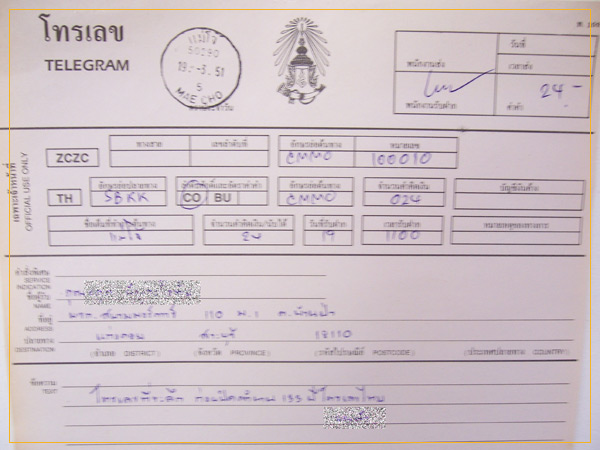 โทรเลข
TELEGRAM
แม่โจ้
50290
51
5
MAE CHO
วันที่
พนักงานส่ง
เวลาส่ง
พนักงานรับฝาก
ค่าคำ
24.-
เฉพาะเจ้าหน้าที่
OFFICIAL USE ONLY
ZCZC
ทางสาย
เลขลำดับที่
อักษรย่อต้นทาง
หมายเลข
CMMO
100010
TH
อักษรย่อปลายทาง
จำนวนคำคิดเงิน
บัญชีเงินค้าง
SBKK
CO
BU
CMMO
024
ชื่อเต็มที่ทำการต้นทาง
จำนวนคำคิดเงิน/นับได้
วันที่รับฝาก
เวลารับฝาก
หมายเหตุของทางการ
แม่โจ้
24
19
1100
คำสั่งพิเศษ
SERVICE
INDICATION
ชื่อผู้รับ
NAME
คุณ
ที่อยู่
ADDRESS
110 ม.1 ต.บ้านป่า
ปลายทาง
DESTINATION
แก่งคอย
สระบุรี
18110
(อำเภอ DISTRICT)
(จังหวัด PROVINCE)
(รหัสไปรษณีย์ POSTCODE)
(ประเทศปลายทาง COUNTRY)
ข้อความ
TEXT
โทรเลขที่ระลึก ก่อนปิดตำนาน 133 ปีโทรเลขไทย